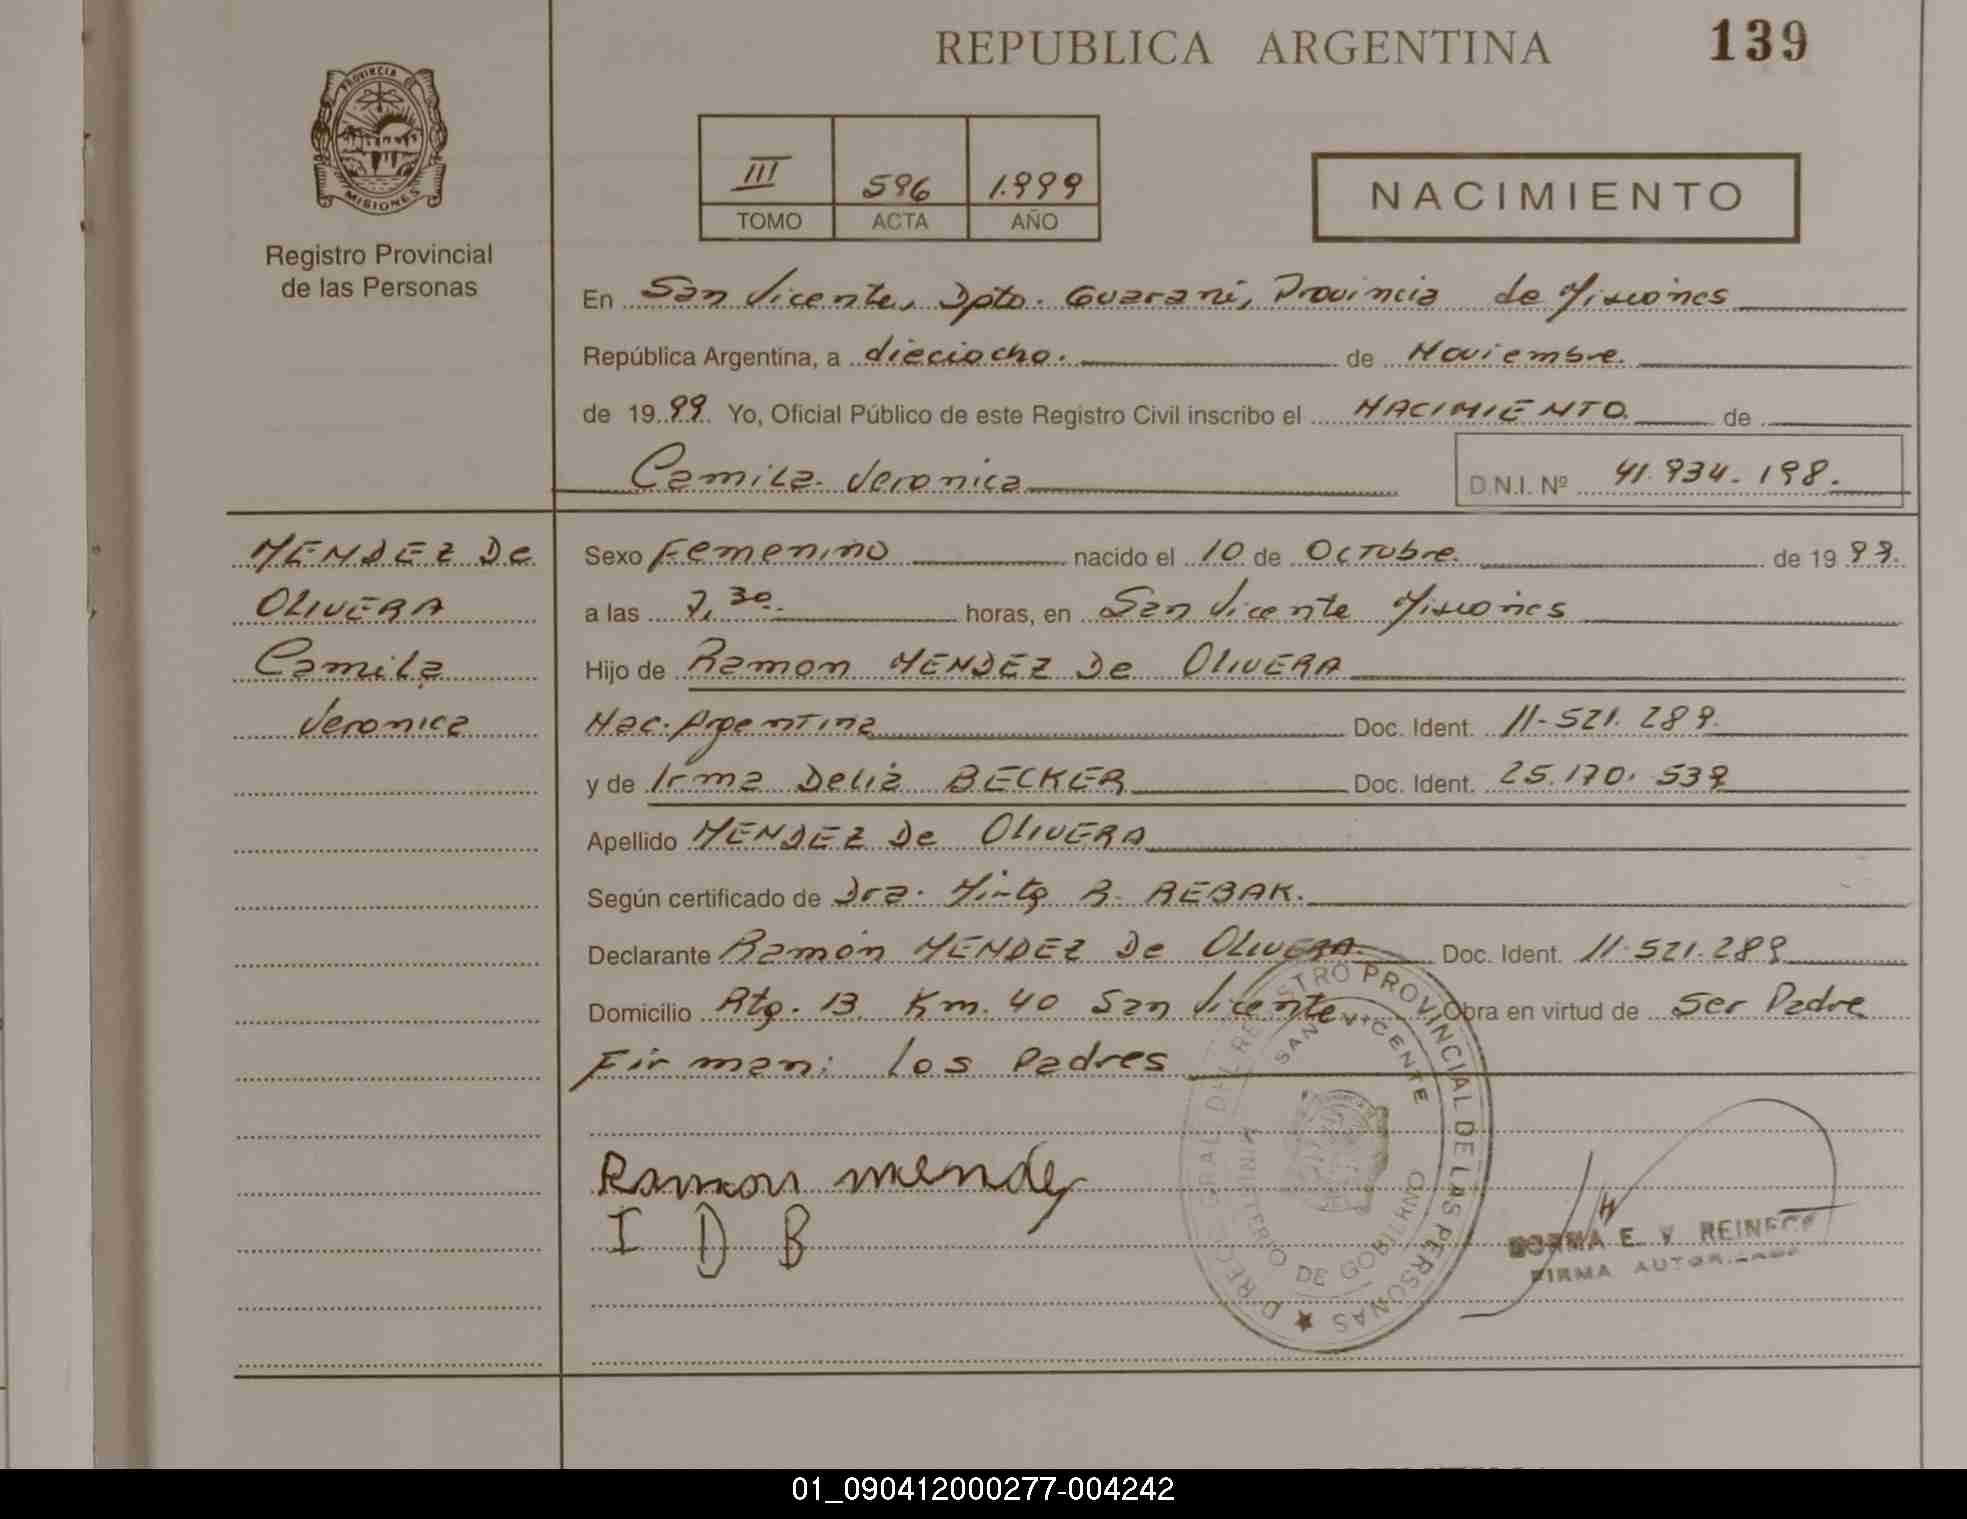 REPUBLICA ARGENTINA
139
PROVINCIA
MISIONES
Registro Provincial
de las Personas
III 596 1.999
TOMO ACTA AÑO
NACIMIENTO
En San Vicente, Dpto. Guarani, Provincia de Misiones
República Argentina, a dieciocho. de Noviembre.
de 19 99. Yo, Oficial Público de este Registro Civil inscribo el NACIMIENTO de
Camila Veronica
D.N.I. Nº 41.934.198.
MENDEZ De
OLIVERA
Camila
Veronica
Sexo Femenino nacido el 10 de Octubre. de 19 99.
a las 7,30 horas, en San Vicente Misiones
Hijo de Ramon MENDEZ De OLIVERA
Nac. Argentina Doc. Ident. 11.521.289.
y de Irma Delia BECKER Doc. Ident. 25.170.539
Apellido MENDEZ De OLIVERA
Según certificado de Dra. Mirta R. REBAK.
Declarante Ramón MENDEZ De OLIVERA. Doc. Ident. 11.521.289
Domicilio Rta. 13 Km. 40 San Vicente Obra en virtud de Ser Padre
Firman: los Padres
Ramon mendez
I D B
REGISTRO PROVINCIAL DE LAS PERSONAS
SAN VICENTE
MINISTERIO DE GOBIERNO
NORMA E. V. REINECK
FIRMA AUTORIZADA
01_090412000277-004242